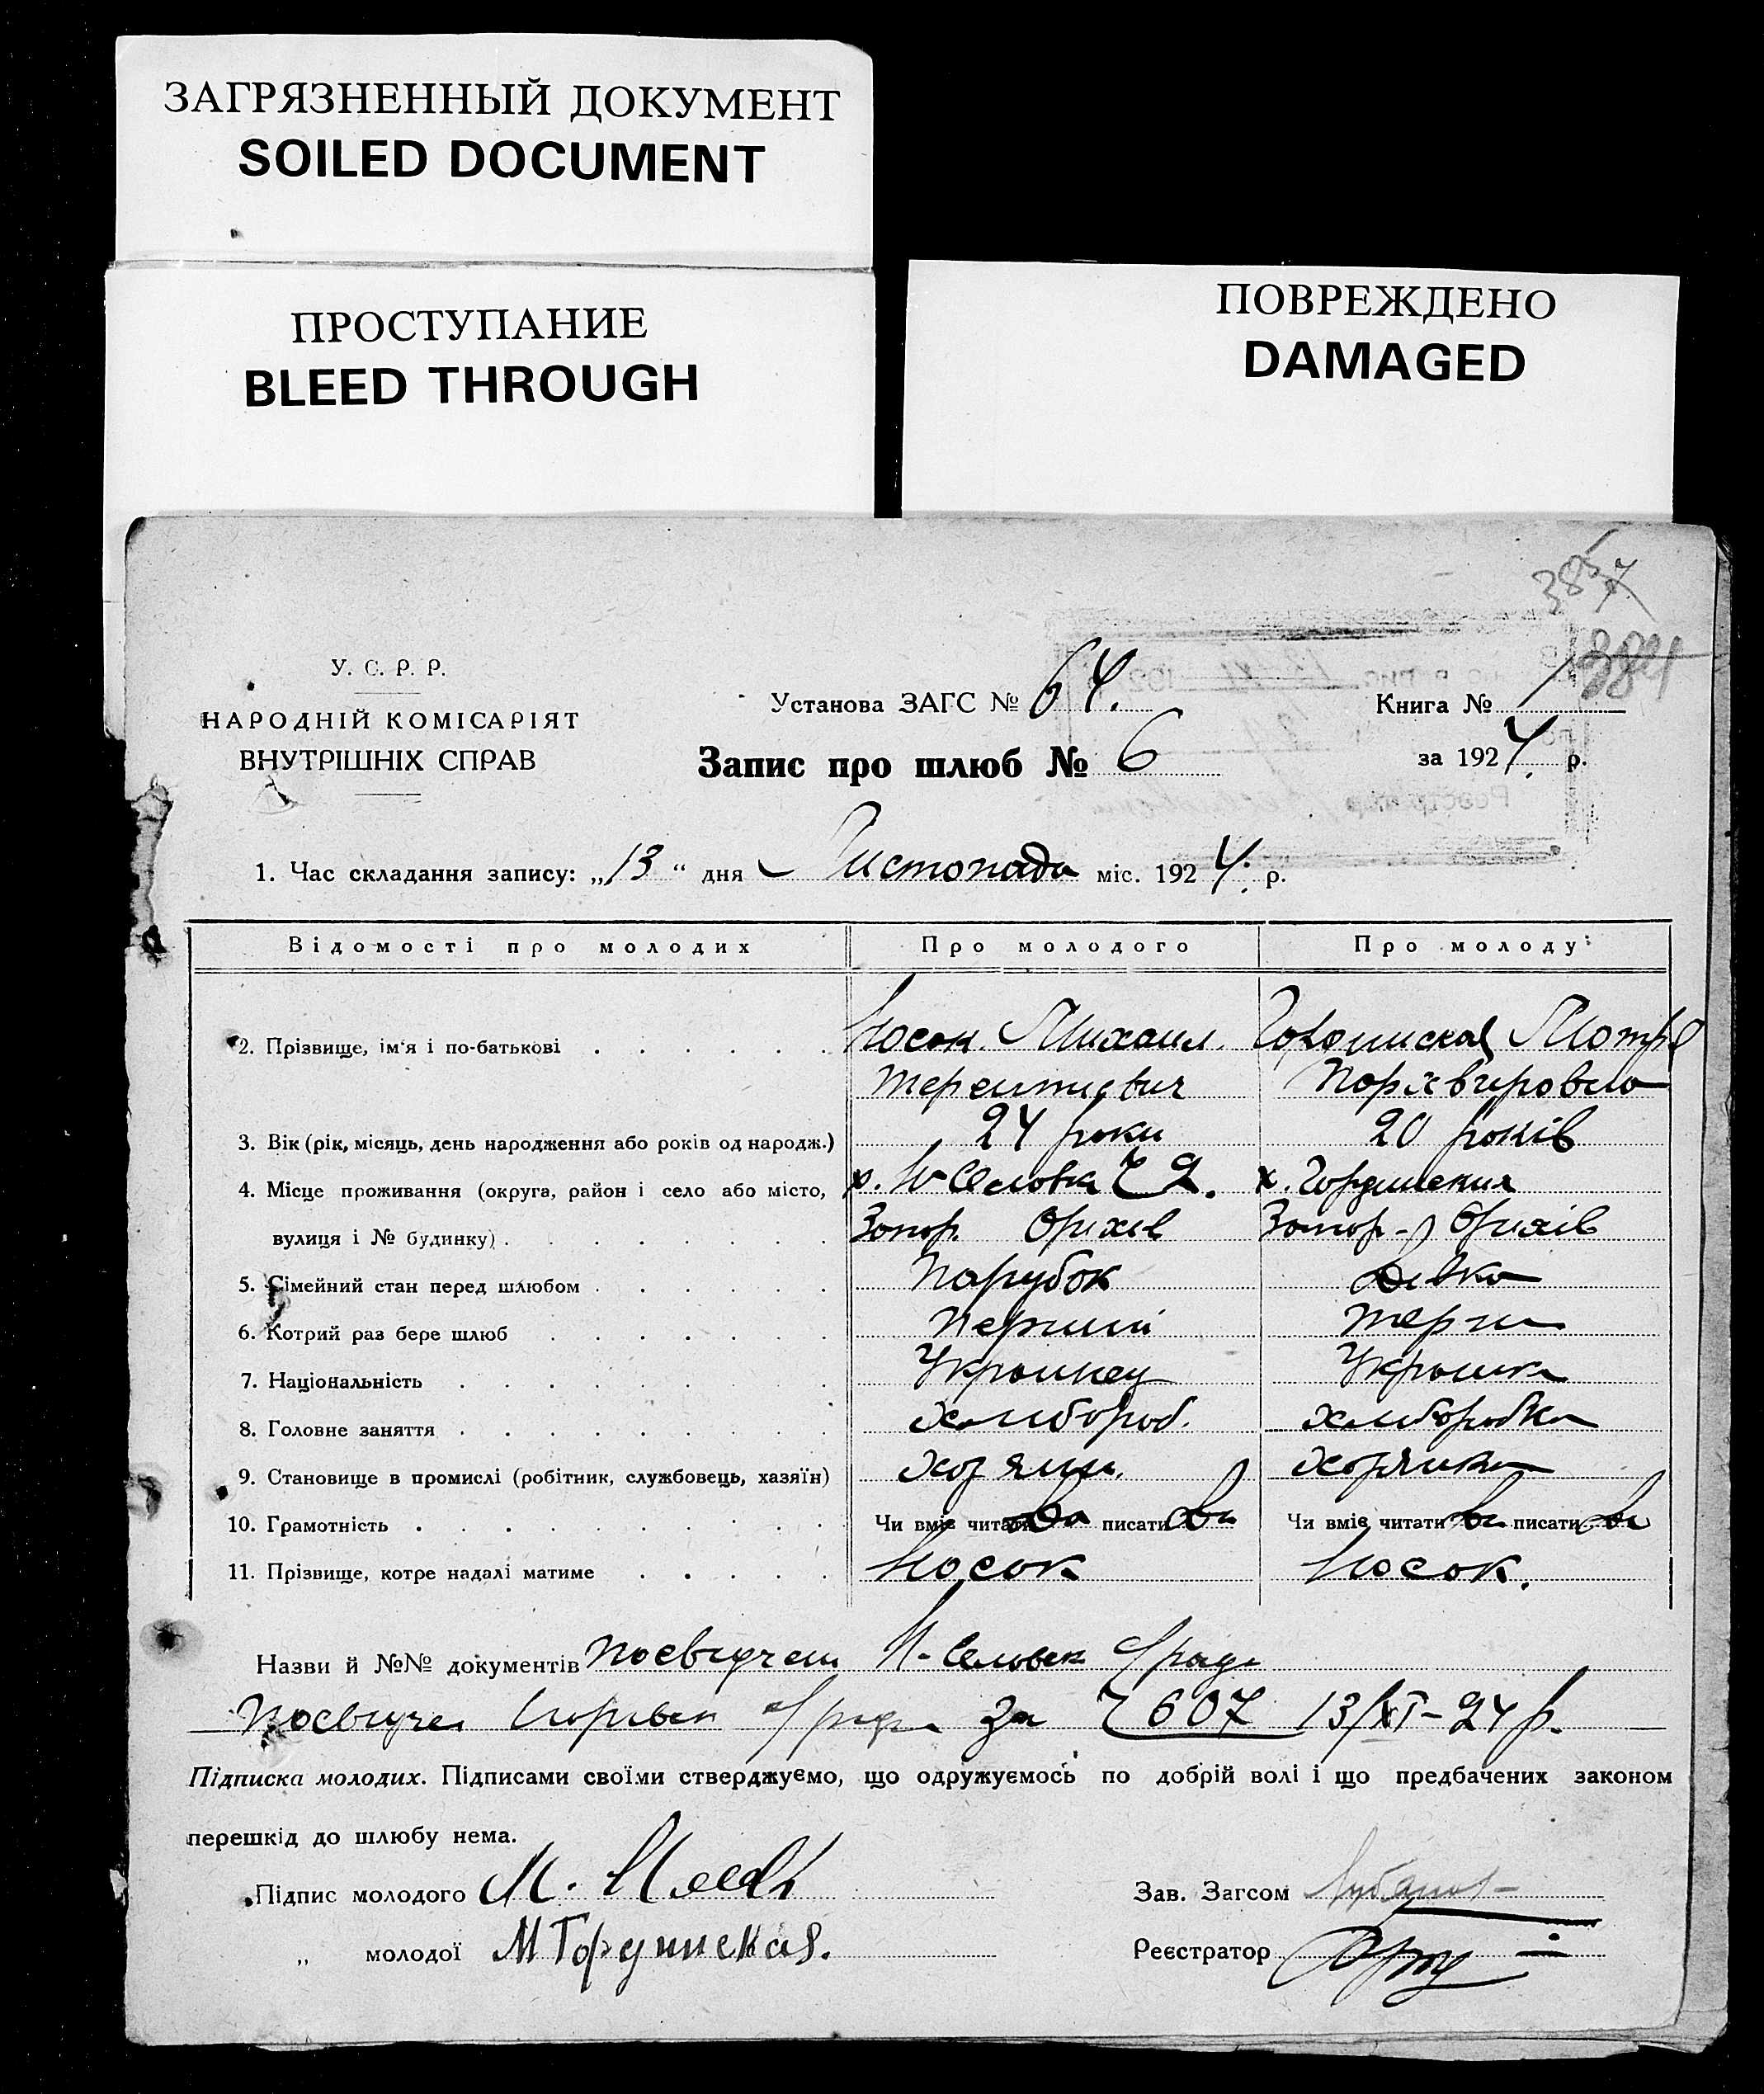 ЗАГРЯЗНЕННЫЙ ДОКУМЕНТ
SOILED DOCUMENT
ПРОСТУПАНИЕ
BLEED THROUGH
ПОВРЕЖДЕНО
DAMAGED
У. С. Р. Р.
НАРОДНІЙ КОМІСАРІЯТ
ВНУТРІШНІХ СПРАВ
Установа ЗАГС № 64.
Книга № 1
Запис про шлюб № 6
за 1924. р.
1. Час складання запису: „13“ дня Листопада міс. 1924. р.
Відомості про молодих Про молодого Про молоду:
2. Прізвище, ім'я і по-батькові Носок Михаил Мотря
3. Вік (рік, місяць, день народження або років од народж.) 24 роки 20 років
4. Місце проживання (округа, район і село або місто, х.
вулиця і № будинку) Запор. Оріхів Запор. Оріхів
5. Сімейний стан перед шлюбом Парубок Дівка
6. Котрий раз бере шлюб Перший Перший
7. Національність Украинец Украинка
8. Головне заняття хлибороб. хлиборобка
9. Становище в промислі (робітник, службовець, хазяїн) хозяин. хозяйка
10. Грамотність Чи вміє читати да писати да Чи вміє читати да писати да
11. Прізвище, котре надалі матиме Носок Носок.
Назви й №№ документів посвідчен
за 607 13/XI-24 р.
Підписка молодих. Підписами своїми стверджуємо, що одружуємось по добрій волі і що предбачених законом
перешкід до шлюбу нема.
Підпис молодого М. Носок
Зав. Загсом
„ молодої М Гординская.
Реєстратор